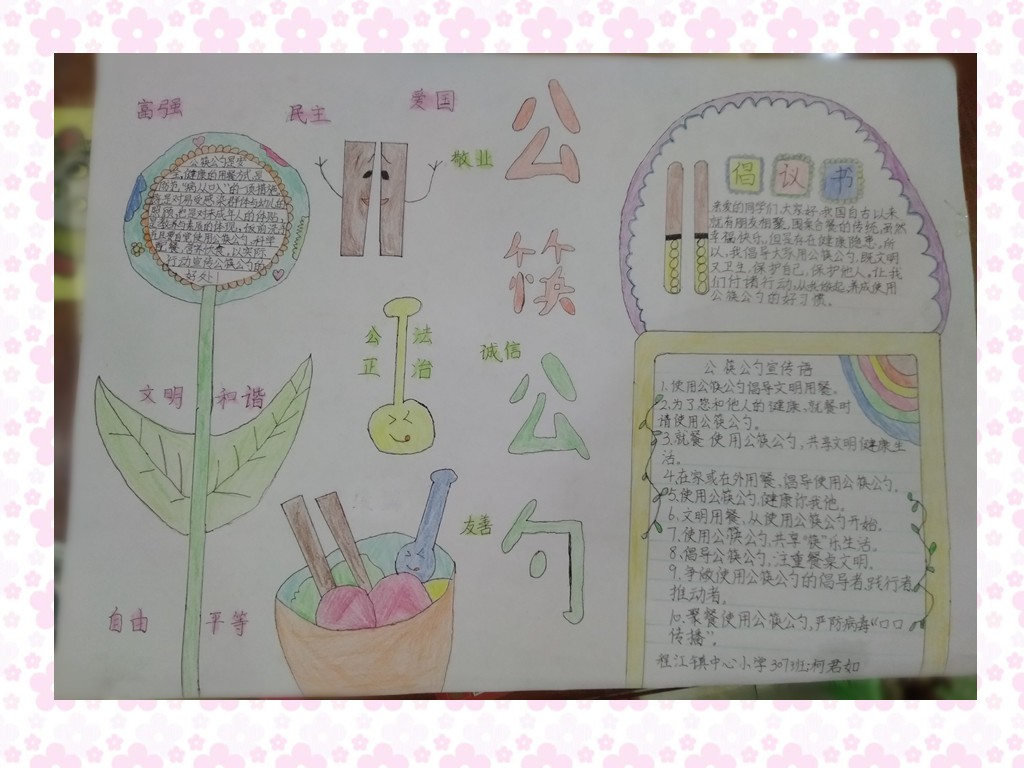 富强
民主
爱国
敬业
公筷公勺
公筷公勺是安
全、健康的用餐方式,是
防范“病从口入”的一项措施,
好处!
公正
法治
诚信
文明
和谐
友善
自由
平等
倡议书
亲爱的同学们,大家好,我国自古以来
就有朋友相聚,围桌合餐的传统,虽然
幸福快乐,但是存在健康隐患,所
以,我倡导大家用公筷公勺,既文明
又卫生,保护自己,保护他人。让我
们付诸行动,从我做起,养成使用
公筷公勺的好习惯。
公筷公勺宣传语
1.使用公筷公勺倡导文明用餐。
2.为了您和他人的健康,就餐时
请使用公筷公勺。
3.就餐使用公筷公勺,共享文明健康生
活。
4.在家或在外用餐,倡导使用公筷公勺。
5.使用公筷公勺,健康你我他。
6.文明用餐,从使用公筷公勺开始。
7.使用公筷公勺,共享“筷”乐生活。
8.倡导公筷公勺,注重餐桌文明。
9.争做使用公筷公勺的倡导者,践行者
推动者。
10.聚餐使用公筷公勺,严防病毒“口口
传播”。
程江镇中心小学307班:柯君如